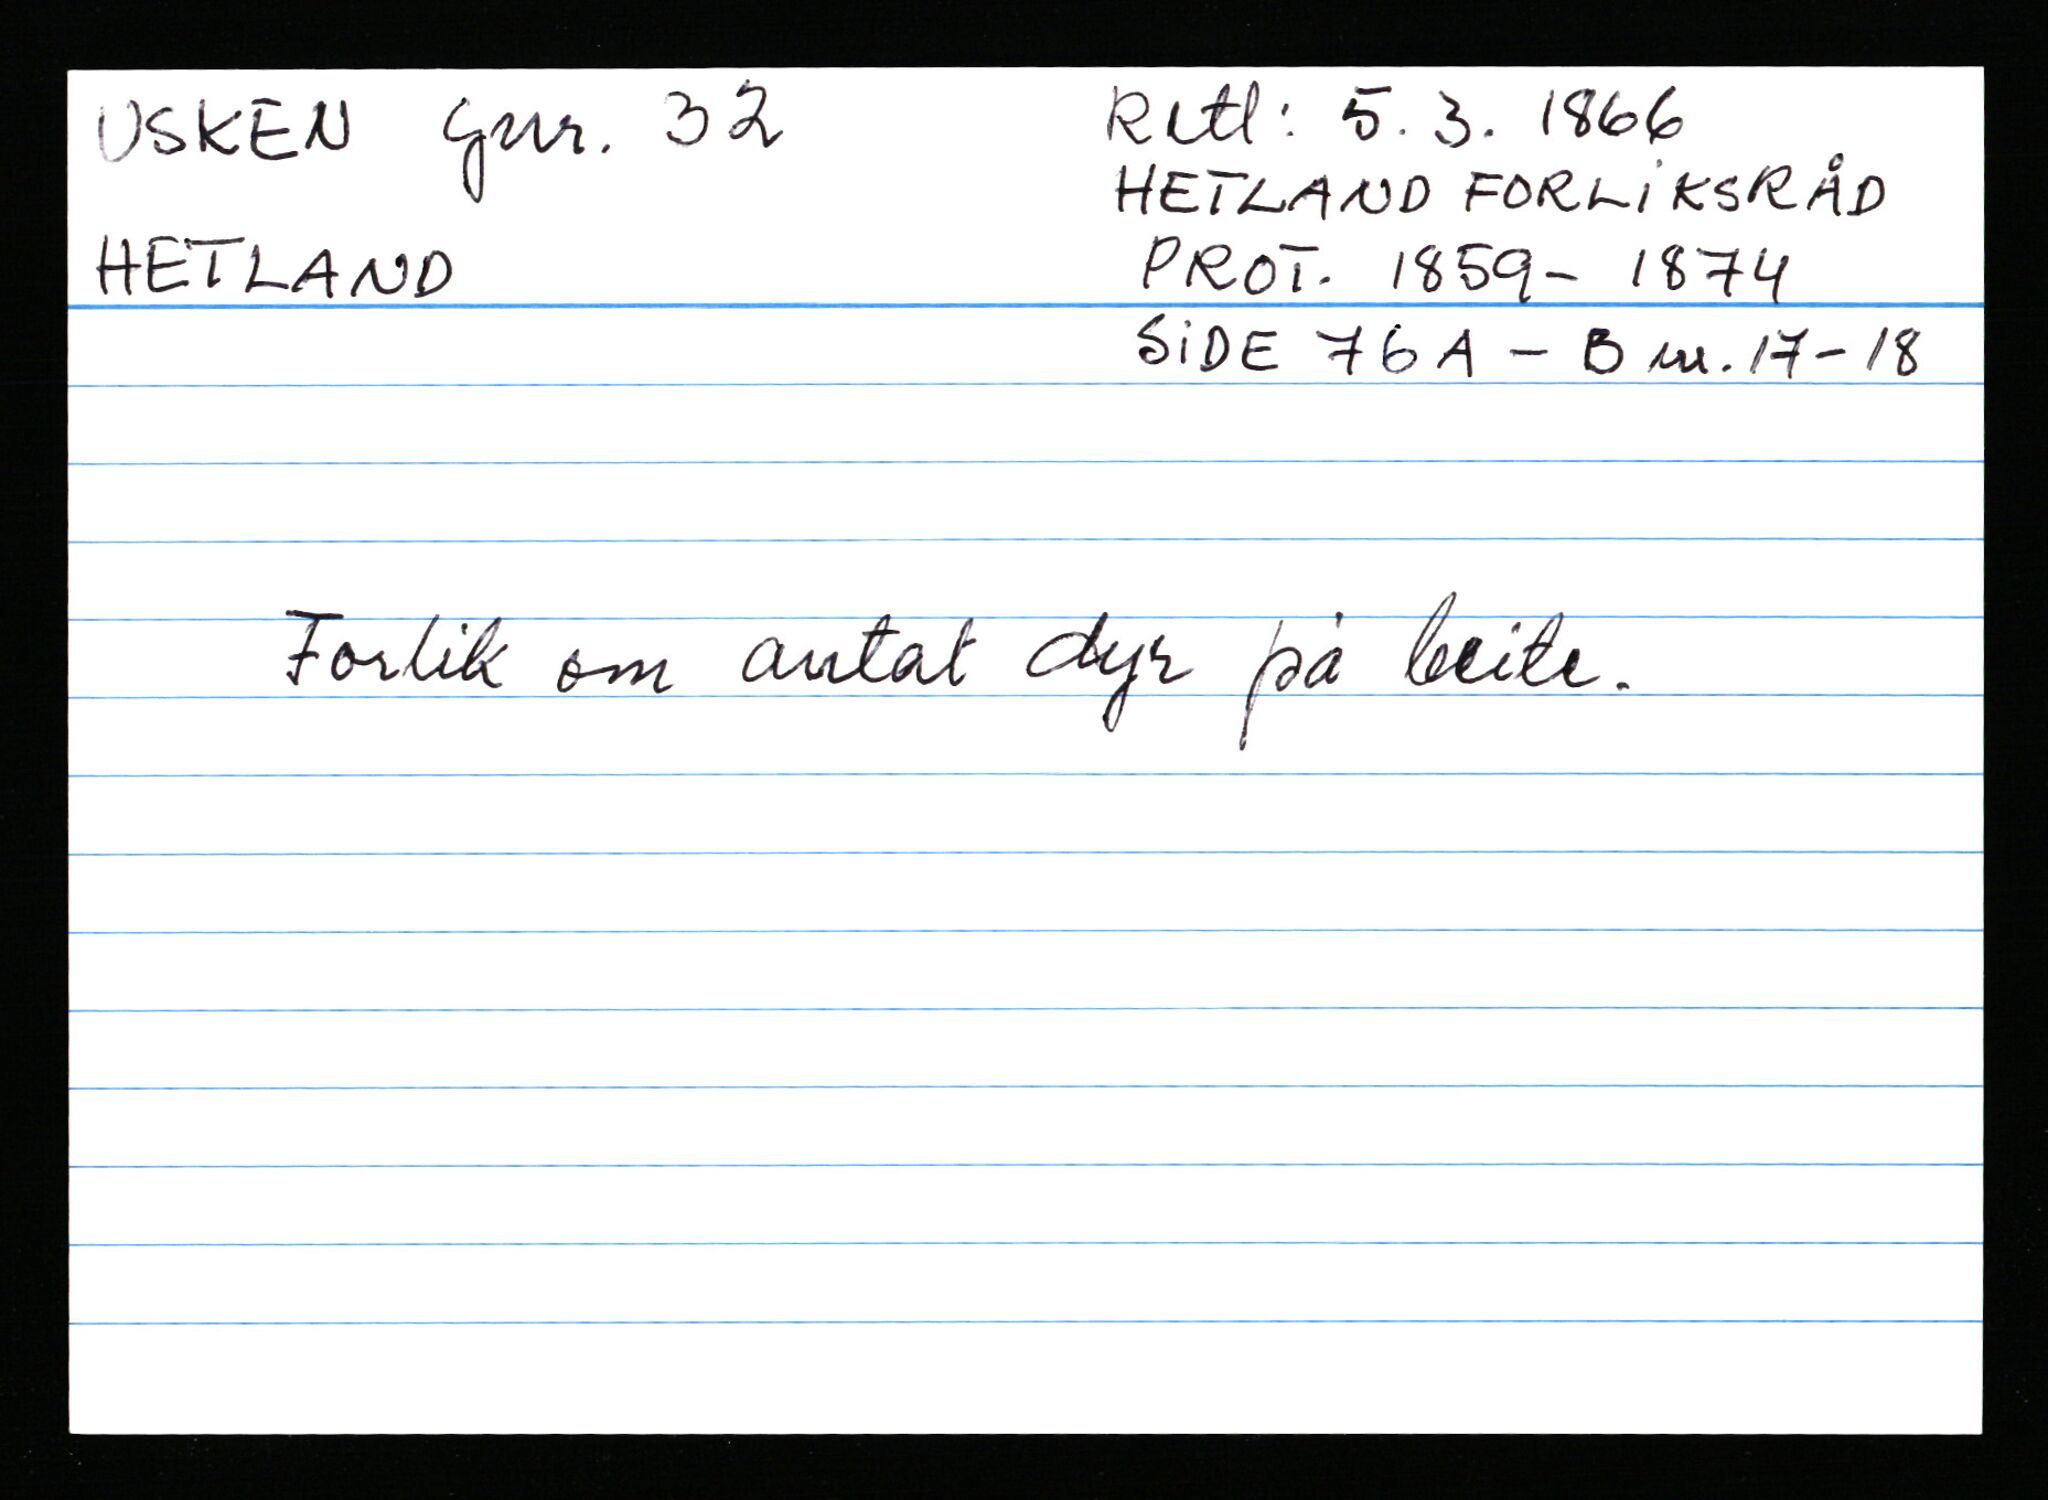 USKEN gnr. 32
HETLAND
Retl: 5. 3. 1866
HETLAND FORLIKSRÅD
PROT. 1859 - 1874
SIDE 76A - B nr. 17-18
Forlik om antal dyr på beite.